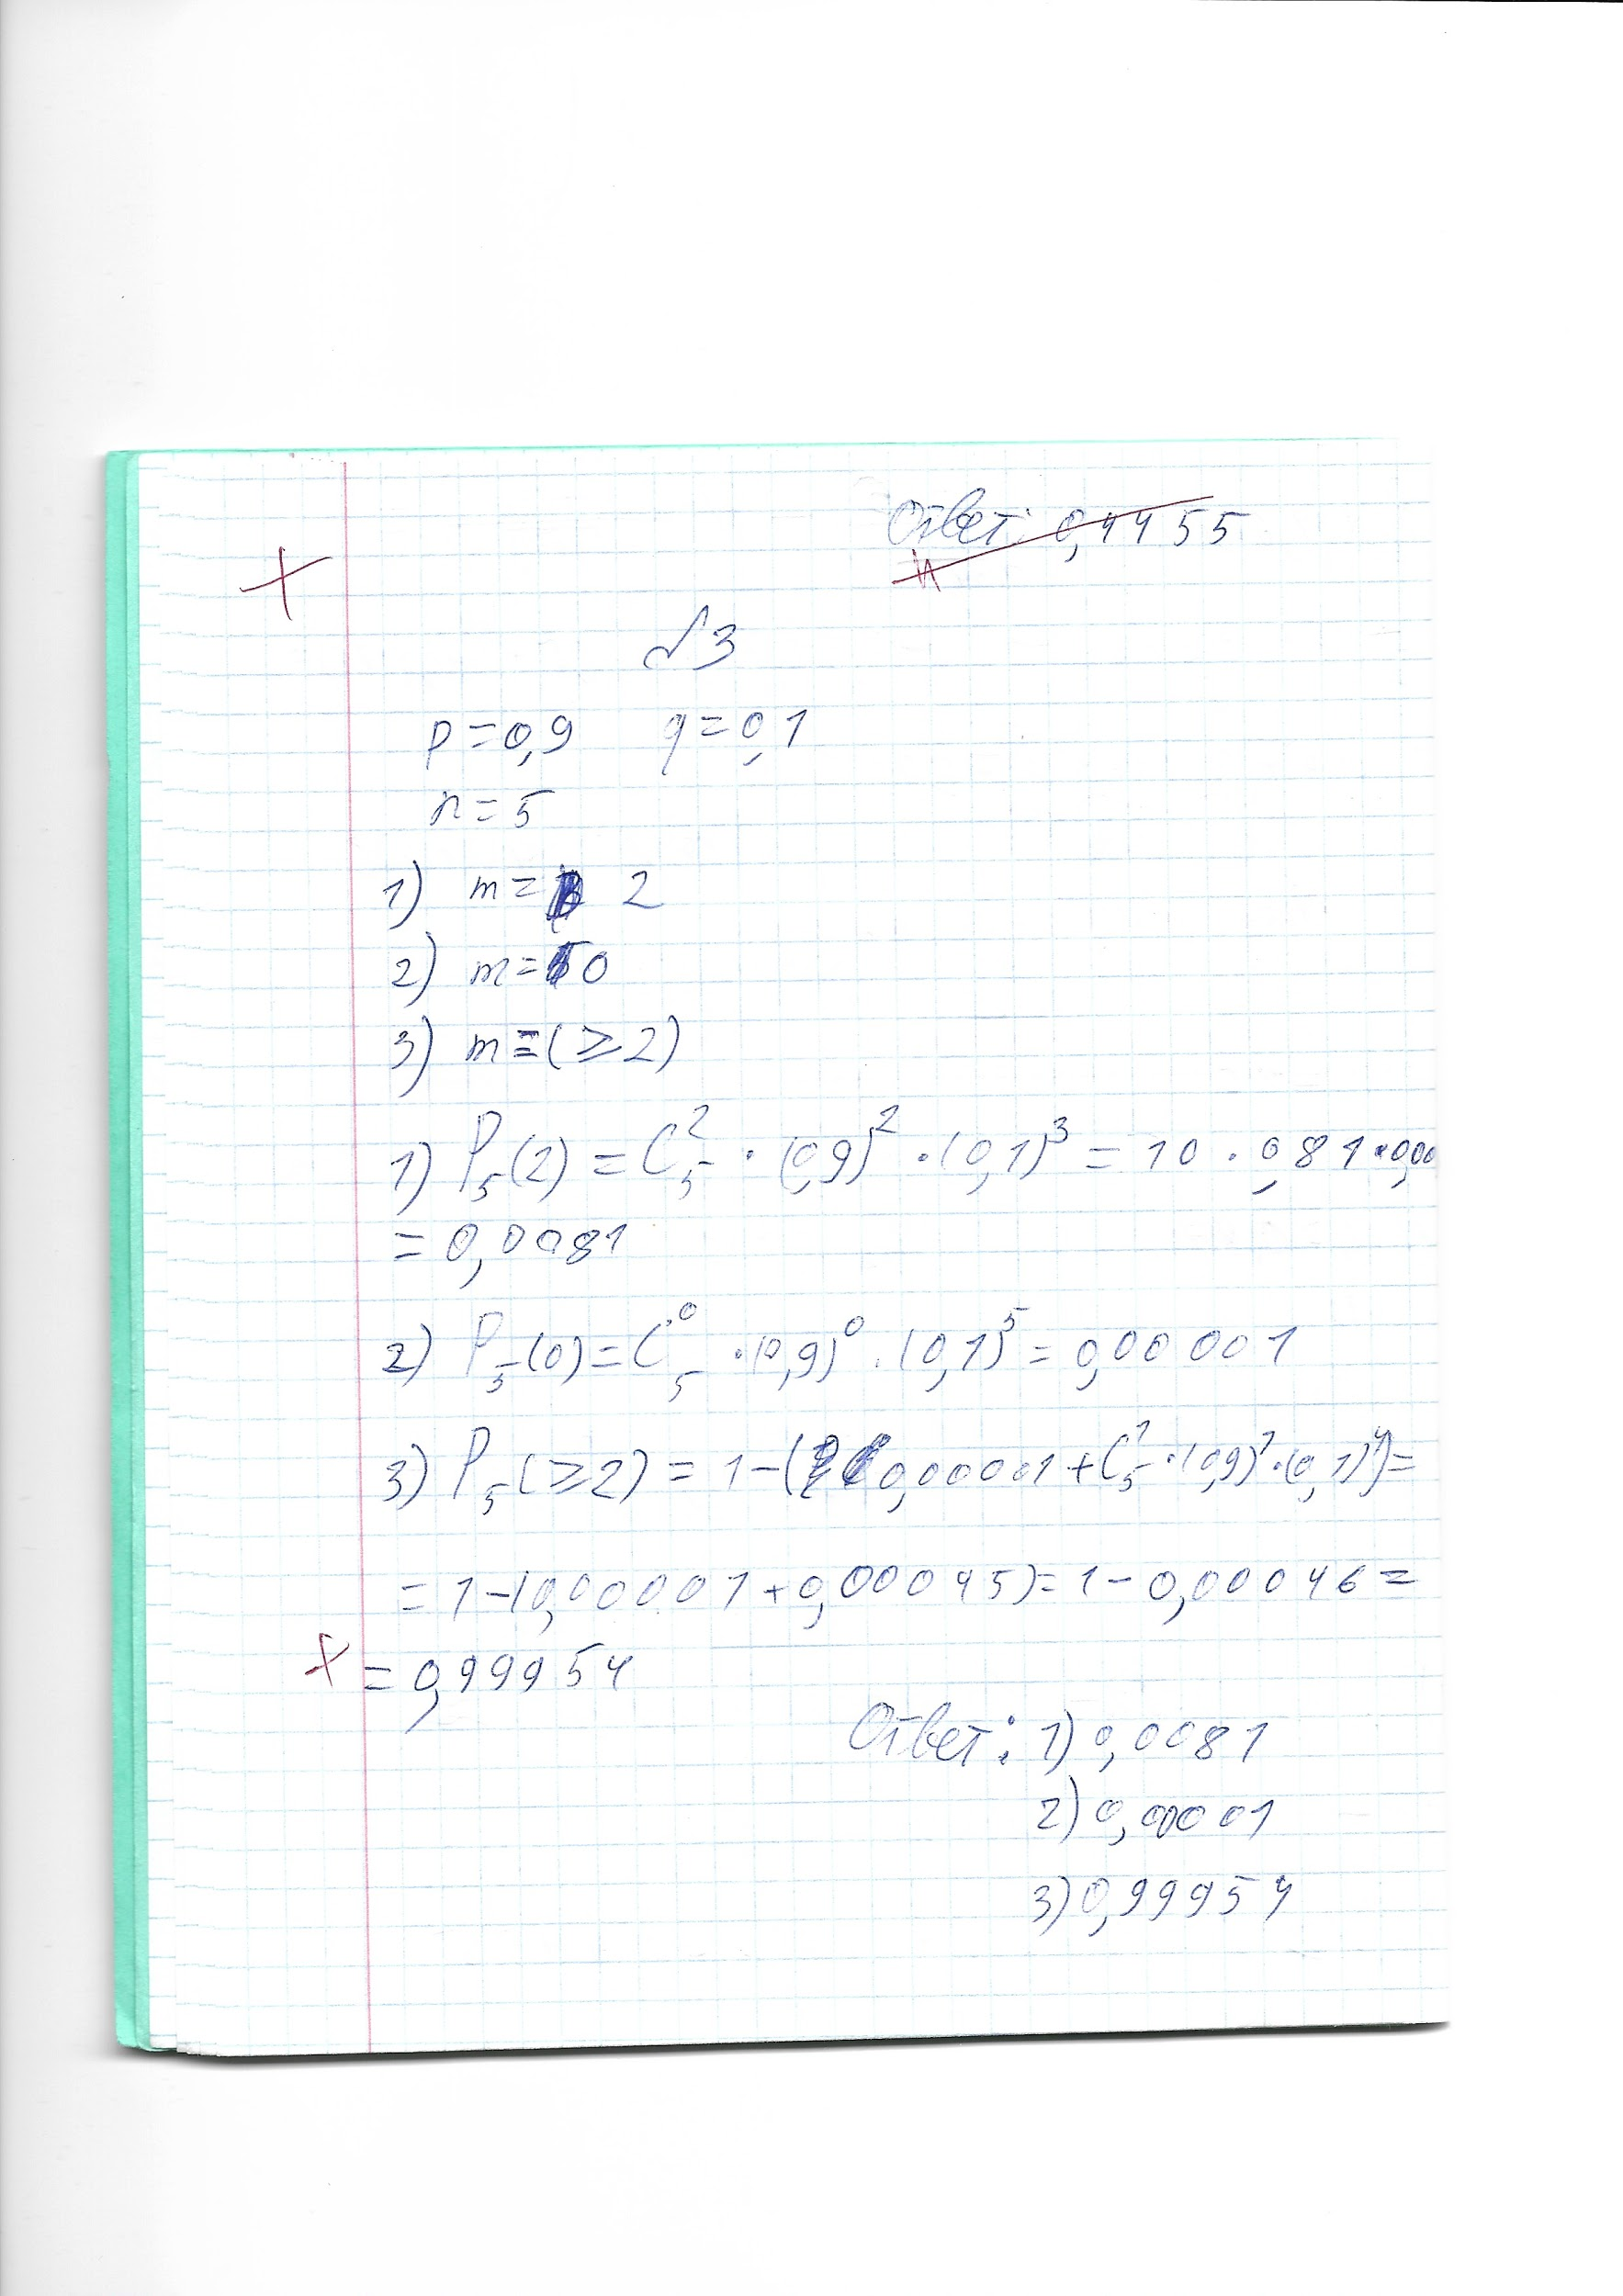 Ответ: 0,4455
+
№3
p=0,9 q=0,1
n=5
1) m= 2
2) m= 0
3) m=(≥2)
1) P₅(2) = C₅² · (0,9)² · (0,1)³ = 10 · 0,81 · 0,00
= 0,0081
2) P₅(0) = C₅⁰ · (0,9)⁰ · (0,1)⁵ = 0,00001
3) P₅(≥2) = 1-(0,00001 + C₅¹ · (0,9)¹ · (0,1)⁴) =
= 1-(0,00001+0,00045) = 1-0,00046 =
+ = 0,99954
Ответ: 1) 0,0081
2) 0,00001
3) 0,99954